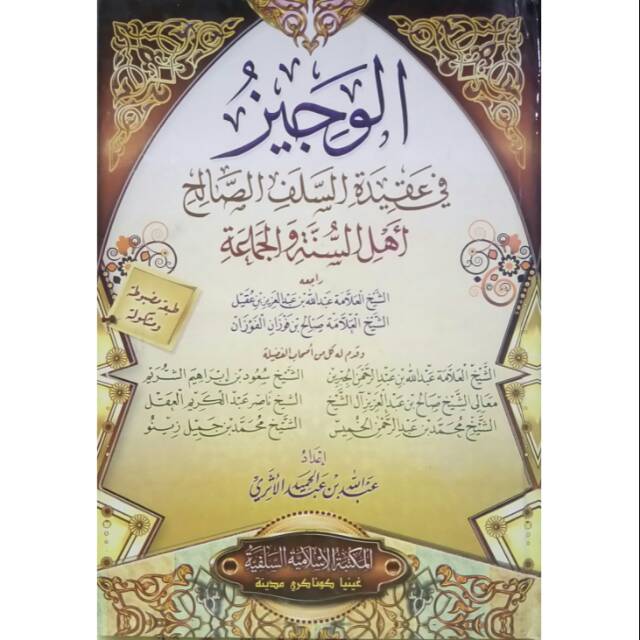 الوجيز
في عقيدة السلف الصالح
أهل السنة والجماعة
راجعه
الشيخ العلامة عبدالله بن عبدالعزيز بن عقيل
الشيخ العلامة صالح بن فوزان الفوزان
طبعة مضبوطة
ومشكولة
وقدم له كل من أصحاب الفضيلة
الشيخ العلامة عبدالله بن عبدالرحمن الجبرين
الشيخ سعود بن إبراهيم الشريم
معالي الشيخ صالح بن عبدالعزيز آل الشيخ
الشيخ ناصر عبدالكريم العقل
الشيخ محمد بن عبدالرحمن الخميس
الشيخ محمد بن جميل زينو
إعداد
عبدالله بن عبدالحميد الأثري
المكتبة الإسلامية السلفية
غينيا كوناكري مدينة